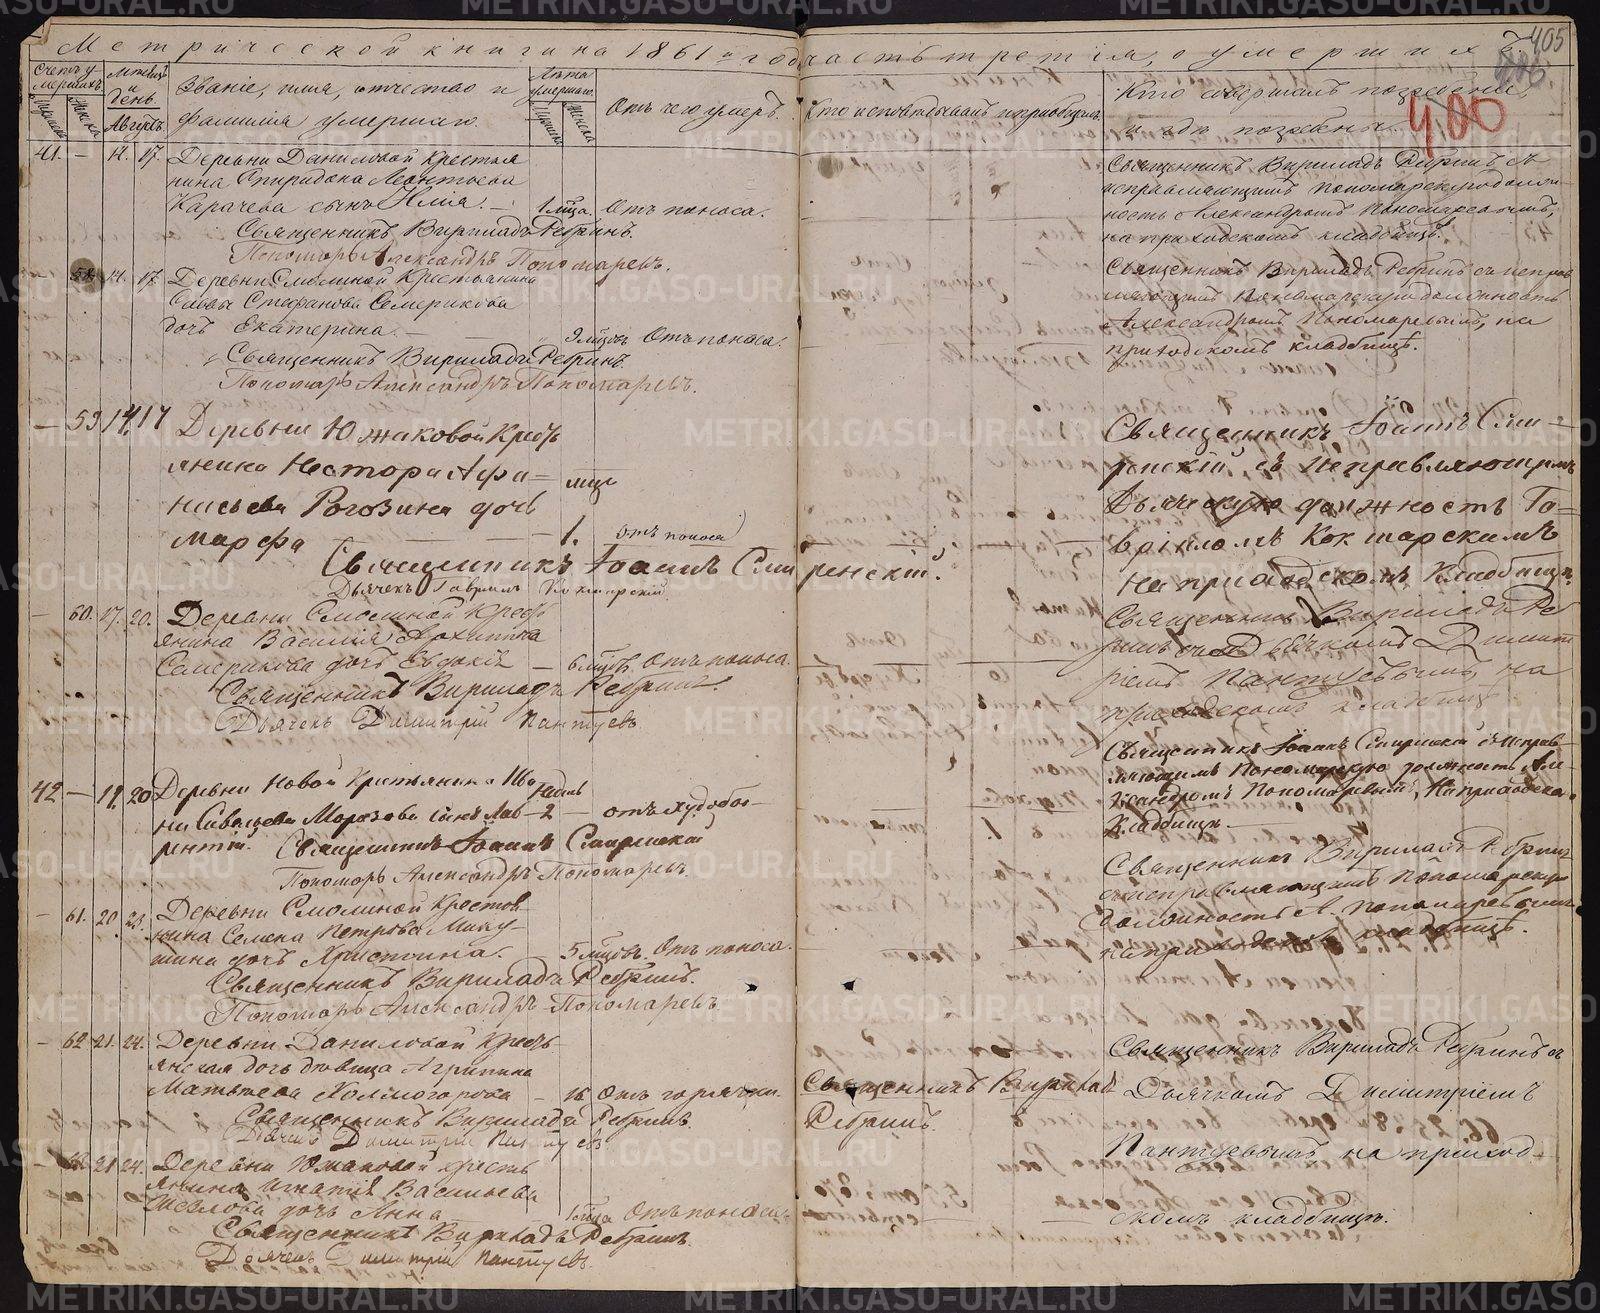 Метрической книги на 1861й год часть третія, о умершихъ
405
400
Счетъ умершихъ
Мѣсяцъ и день.
Августъ
Званіе, имя, отчество и фамилія умершаго.
Лѣта умершаго.
Отъ чего умеръ.
Кто исповѣдывалъ и пріобщалъ
Кто совершалъ погребеніе и гдѣ погребены
41. — 14. 17. Деревни Даниловой крестья
нина Спиридона Леонтьева
Карачева сынъ Илія. — 1 мца. Отъ поноса.
Священникъ Вириладъ Ребринъ.
Пономарь Александръ Пономаревъ.
Священникъ Вириладъ Ребринъ съ
исправляющимъ пономарскую долж
ность Александромъ Пономаревымъ,
на приходскомъ кладбищѣ.
— 58. 14. 17. Деревни Смолиной Крестьянина
Саввы Стефанова Семерикова
дочь Екатерина. — 9 мцвъ Отъ поноса.
Священникъ Вириладъ Ребринъ.
Пономарь Александръ Пономаревъ.
Священникъ Вириладъ Ребринъ съ исправ
ляющимъ Пономарскую должность
Александромъ Пономаревымъ, на
приходскомъ кладбищѣ.
— 59 14. 17 Деревни Южаковой Кресть
янина Нестора Афа=
насьева Рогозина дочь
Марфа — мца 1. отъ поноса
Священникъ Іоаннъ Смиренскій.
Дьячекъ Гавріилъ Коктарскій.
Священникъ Іоаннъ Сми=
ренскій съ исправляющимъ
Дьяческую должность Га=
вріиломъ Коктарскимъ
на приходскомъ кладбищѣ.
— 60. 17. 20. Деревни Смолиной Кресть
янина Василія Архипова
Семерикова дочь Евдокія — 6 мцвъ. Отъ поноса.
Священникъ Вириладъ Ребринъ.
Дьячекъ Димитрій Пантуевъ
Священникъ Вириладъ Реб
ринъ съ Дьячкомъ Димит
ріемъ Пантуевымъ, на
приходскомъ кладбищѣ
42 — 19. 20 Деревни Новой Крестьянина Ива
на Савельева Морозова сынъ Лав
рентій. недѣль 2 — отъ худобы —
Священникъ Іоаннъ Смиренскій
Пономарь Александръ Пономаревъ.
Священникъ Іоаннъ Смиренскій съ исправ
ляющимъ Пономарскую должность Але
ксандромъ Пономаревымъ, на приходско.
кладбищѣ. —
— 61. 20. 23. Деревни Смолиной Крестья
нина Семена Петрова Мику
шина дочь Христина. 5 мцовъ. Отъ поноса.
Священникъ Вириладъ Ребринъ.
Пономарь Александръ Пономаревъ.
Священникъ Вириладъ Ребринъ
съ исправляющимъ Пономарскую
должность А. Пономаревымъ
на приходскомъ кладбищѣ.
— 62. 21. 24. Деревни Даниловой Кресть
янская дочь дѣвица Агрипина
Матвѣева Холмогорова — 16 Отъ горячки.
Священникъ Вириладъ Ребринъ.
Дьячекъ Димитрій Пантуевъ
Священникъ Вириладъ
Ребринъ.
Священникъ Вириладъ Ребринъ съ
Дьячкомъ Димитріемъ
Пантуевымъ на приход
скомъ кладбищѣ.
— 63. 21 24. Деревни Южаковой кресть
янина Игнатія Васильева
дочь Анна 1 мца Отъ поноса.
Священникъ Вириладъ Ребринъ.
Дьячекъ Димитрій Пантуевъ.
METRIKI.GASO-URAL.RU